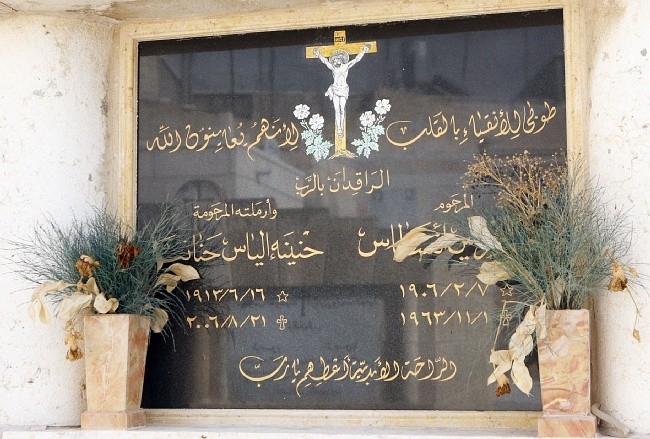 طوبى للأنقياء بالقلب لأنهم يعاينون الله
الراقدان بالرب
المرحوم
الياس
١٩٠٦/٢/٧
١٩٦٣/١١/١
وأرملته المرحومة
حنينه الياس
١٩١٣/٦/١٦
٢٠٠٦/٨/٢١
الراحة الأبدية أعطهم يا رب